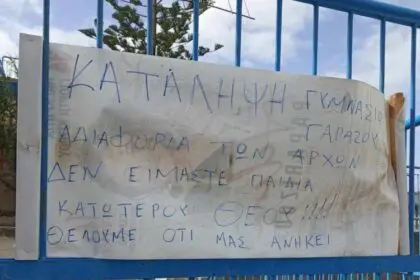 ΚΑΤΑΛΗΨΗ ΓΥΜΝΑΣΙΟ
ΓΑΡΑΖΟΥ
ΑΔΙΑΦΟΡΙΑ ΤΩΝ ΑΡΧΩΝ
ΔΕΝ ΕΙΜΑΣΤΕ ΠΑΙΔΙΑ
ΚΑΤΩΤΕΡΟΥ ΘΕΟΥ!!!!
ΘΕΛΟΥΜΕ ΟΤΙ ΜΑΣ ΑΝΗΚΕΙ